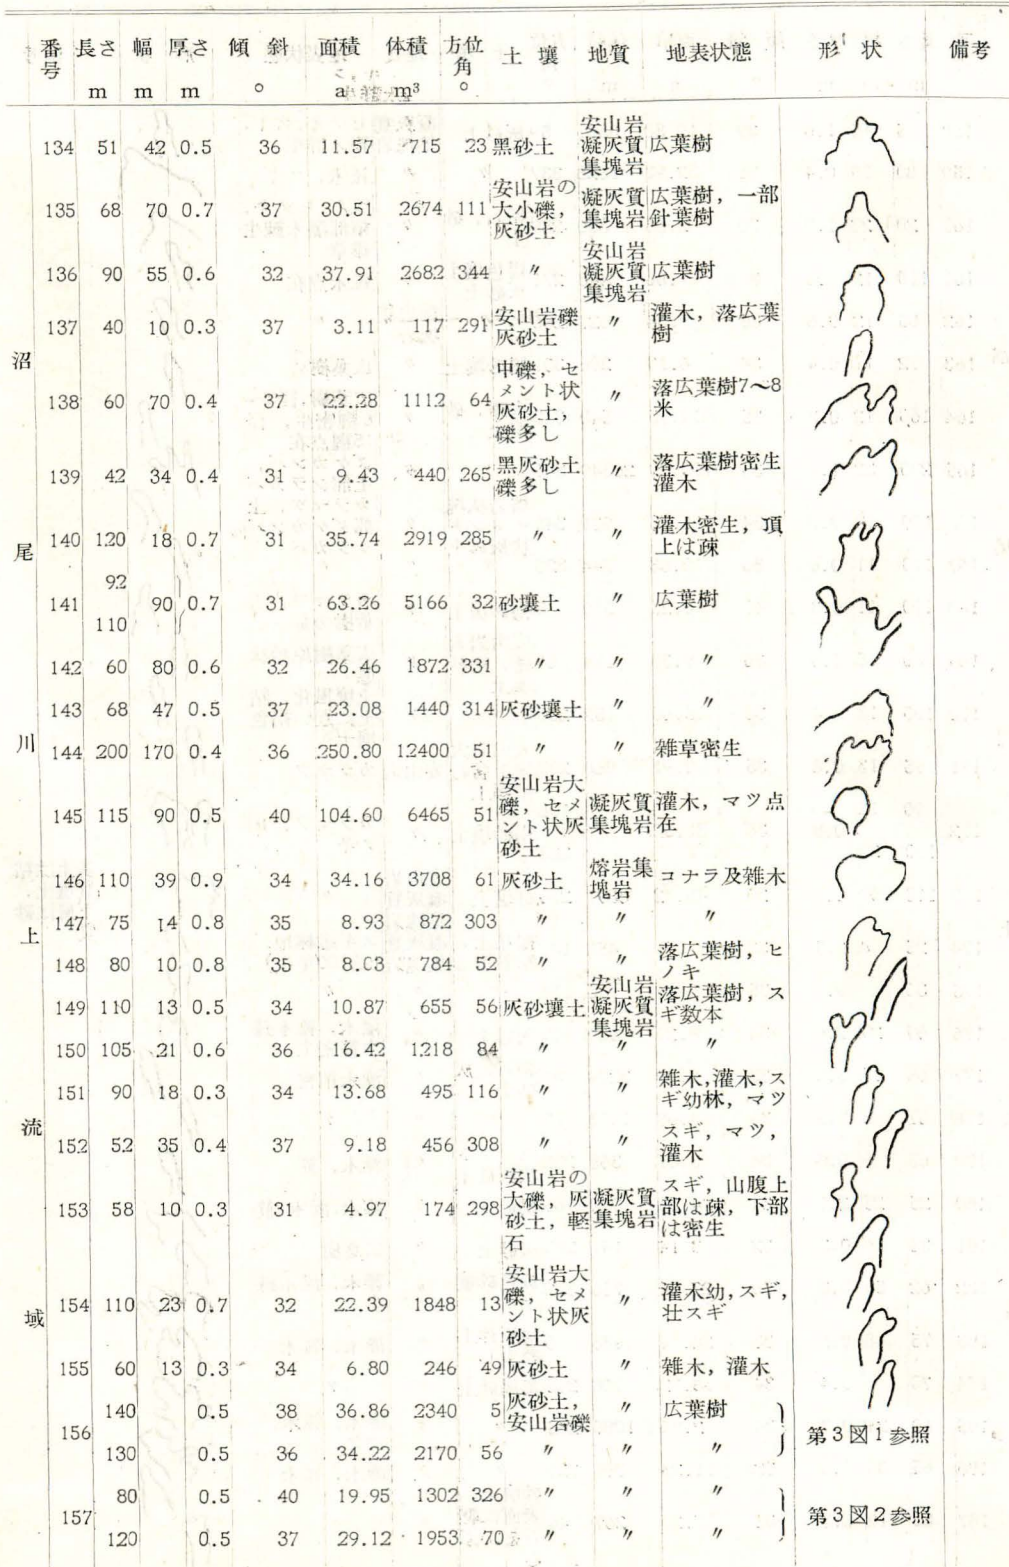 番号 長さ 幅 厚さ 傾斜 面積 体積 方位角 土壌 地質 地表状態 形状 備考
m m m ° a m³ °
沼尾川上流域
134 51 42 0.5 36 11.57 715 23 黒砂土 安山岩凝灰質集塊岩 広葉樹
135 68 70 0.7 37 30.51 2674 111 安山岩の大小礫,灰砂土 凝灰質集塊岩 広葉樹,一部針葉樹
136 90 55 0.6 32 37.91 2682 344 〃 安山岩凝灰質集塊岩 広葉樹
137 40 10 0.3 37 3.11 117 291 安山岩礫灰砂土 〃 灌木,落広葉樹
138 60 70 0.4 37 22.28 1112 64 中礫,セメント状灰砂土,礫多し 〃 落広葉樹7~8米
139 42 34 0.4 31 9.43 440 265 黒灰砂土礫多し 〃 落広葉樹密生灌木
140 120 18 0.7 31 35.74 2919 285 〃 〃 灌木密生,頂上は疎
141 92 110 90 0.7 31 63.26 5166 32 砂壌土 〃 広葉樹
142 60 80 0.6 32 26.46 1872 331 〃 〃 〃
143 68 47 0.5 37 23.08 1440 314 灰砂壌土 〃 〃
144 200 170 0.4 36 250.80 12400 51 〃 〃 雑草密生
145 115 90 0.5 40 104.60 6465 51 安山岩大礫,セメント状灰砂土 凝灰質集塊岩 灌木,マツ点在
146 110 39 0.9 34 34.16 3708 61 灰砂土 熔岩集塊岩 コナラ及雑木
147 75 14 0.8 35 8.93 872 303 〃 〃 〃
148 80 10 0.8 35 8.03 784 52 〃 〃 落広葉樹,ヒノキ
149 110 13 0.5 34 10.87 655 56 灰砂壌土 安山岩凝灰質集塊岩 落広葉樹,スギ数本
150 105 21 0.6 36 16.42 1218 84 〃 〃 〃
151 90 18 0.3 34 13.68 495 116 〃 〃 雑木,灌木,スギ幼林,マツ
152 52 35 0.4 37 9.18 456 308 〃 〃 スギ,マツ,灌木
153 58 10 0.3 31 4.97 174 298 安山岩の大礫,灰砂土,軽石 凝灰質集塊岩 スギ,山腹上部は疎,下部は密生
154 110 23 0.7 32 22.39 1848 13 安山岩大礫,セメント状灰砂土 〃 灌木幼,スギ,壮スギ
155 60 13 0.3 34 6.80 246 49 灰砂土 〃 雑木,灌木
156 140 0.5 38 36.86 2340 5 灰砂土,安山岩礫 〃 広葉樹
130 0.5 36 34.22 2170 56 〃 〃 〃
第3図1参照
157 80 0.5 40 19.95 1302 326 〃 〃 〃
120 0.5 37 29.12 1953 70 〃 〃 〃
第3図2参照